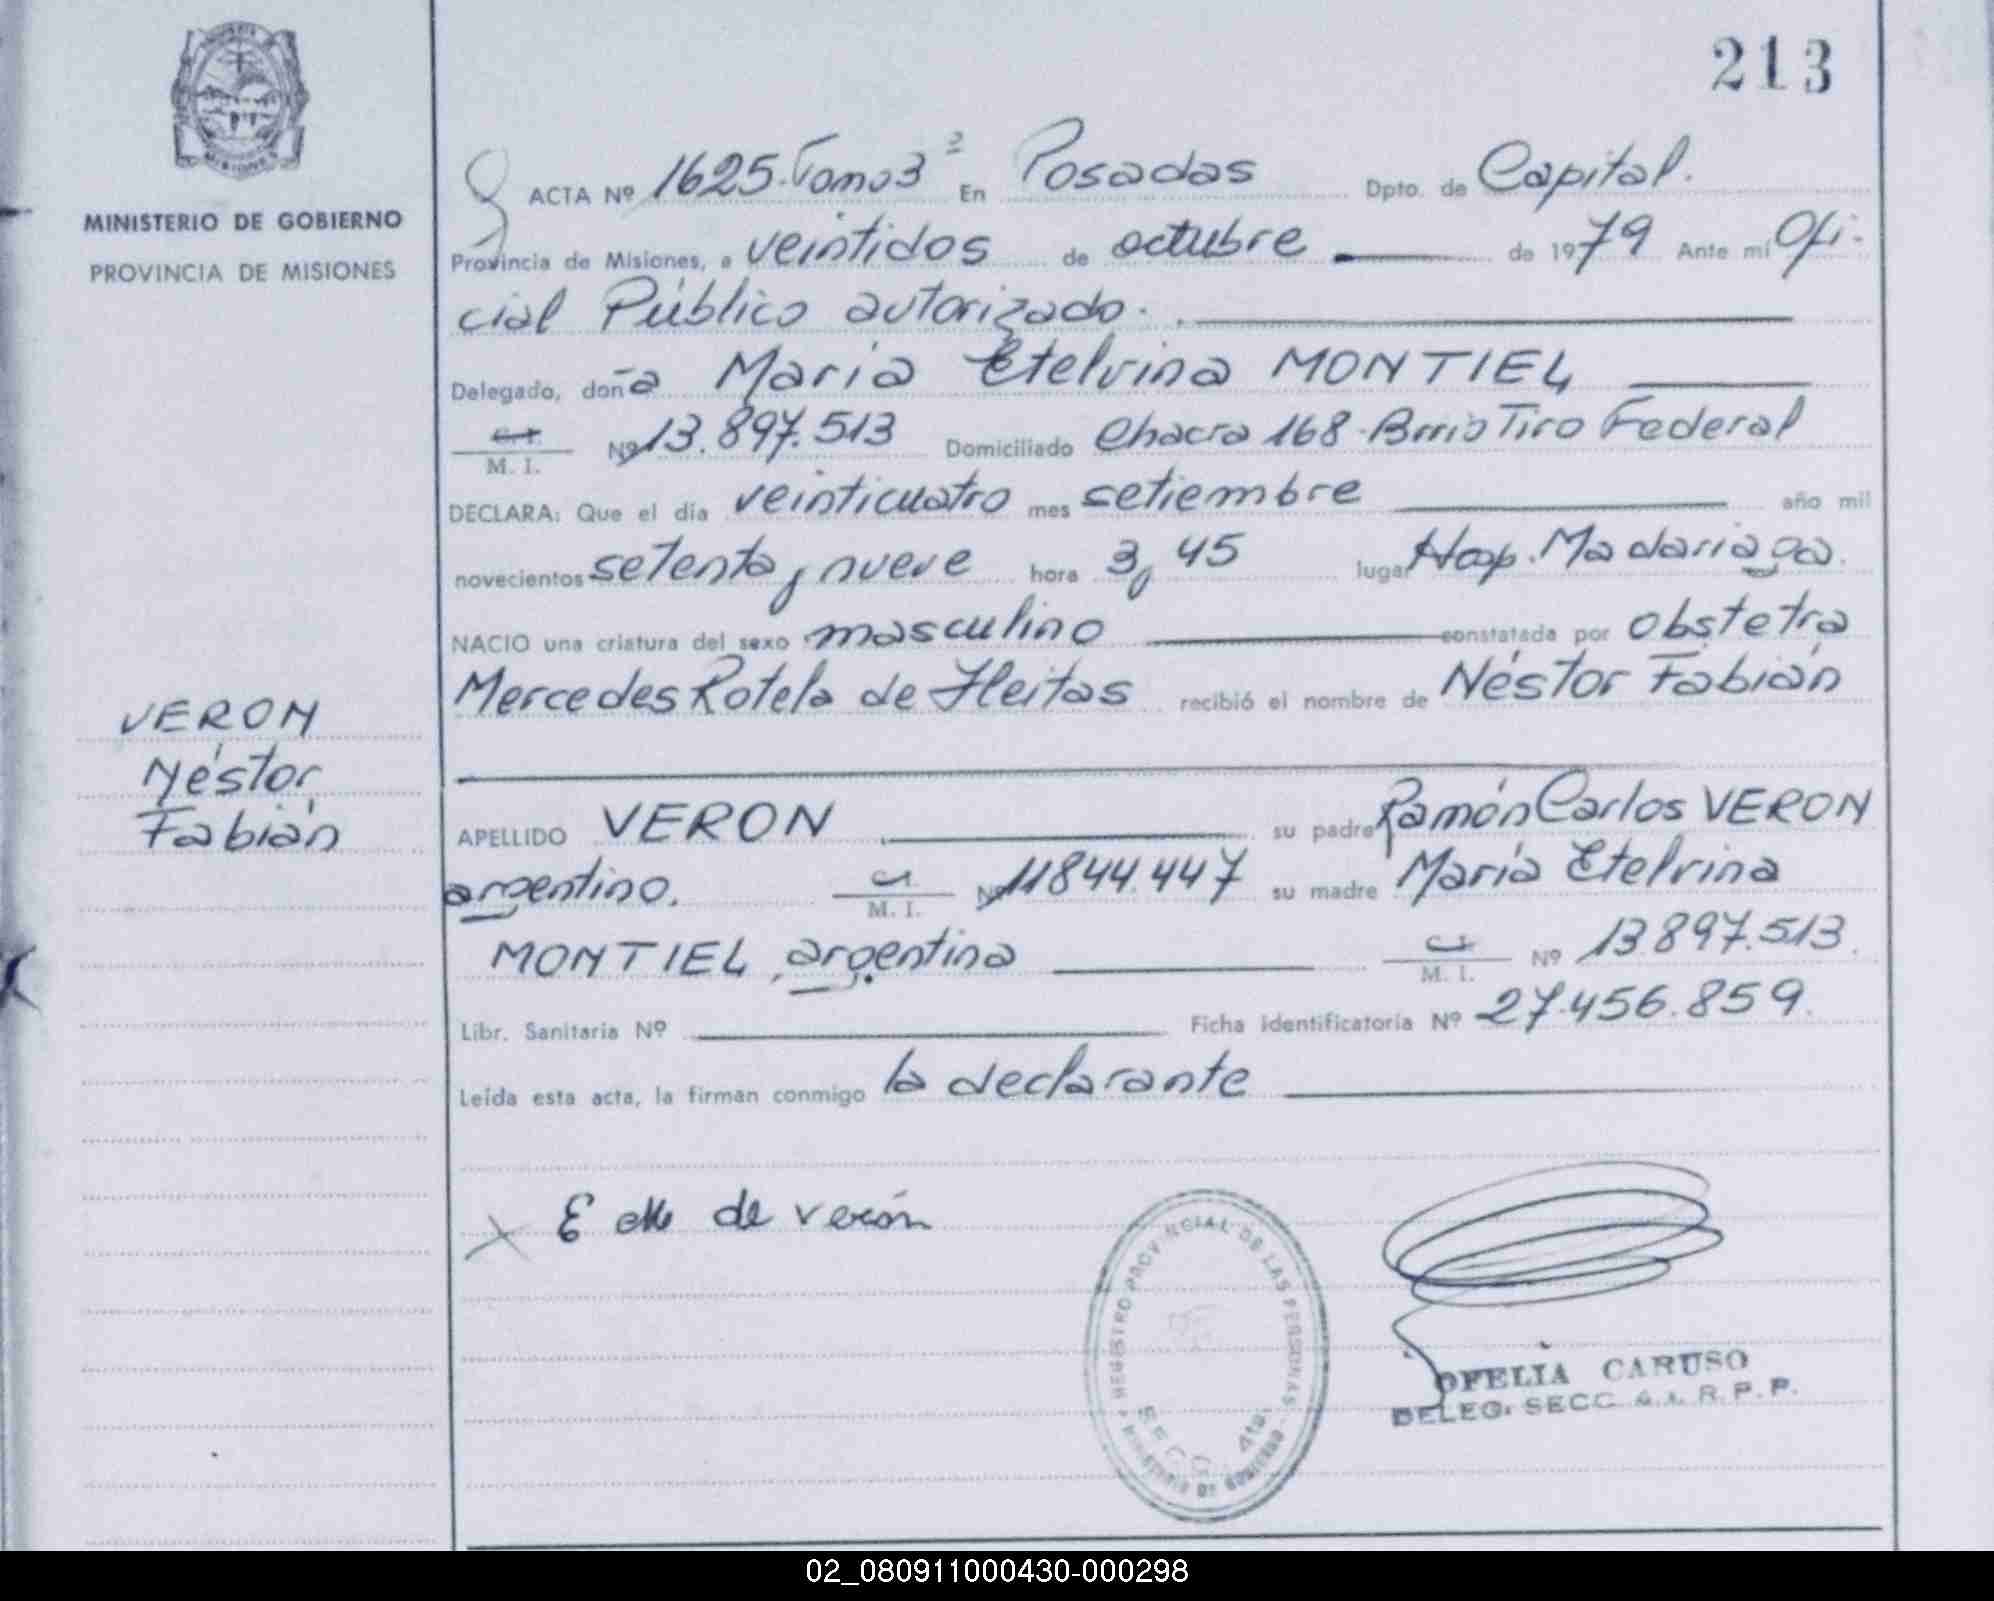 213
MINISTERIO DE GOBIERNO
PROVINCIA DE MISIONES
VERON
Néstor
Fabián
ACTA Nº 1625. Tomo 3º En Posadas Dpto. de Capital.
Provincia de Misiones, a veintidos de octubre de 1979 Ante mí Ofi-
cial Público autorizado.
Delegado, doña María Etelvina MONTIEL
C.I. M. I. Nº 13.897.513 Domiciliado Chacra 168 - Barrio Tiro Federal
DECLARA: Que el día veinticuatro mes setiembre año mil
novecientos setenta y nueve hora 3,45 lugar Hosp. Madariaga.
NACIO una criatura del sexo masculino constatada por obstetra
Mercedes Rotela de Fleitas recibió el nombre de Néstor Fabián
APELLIDO VERON su padre Ramón Carlos VERON
argentino. C.I. M. I. Nº 11844.447 su madre María Etelvina
MONTIEL, argentina C.I. M. I. Nº 13.897.513.
Libr. Sanitaria Nº Ficha identificatoria Nº 27.456.859.
Leída esta acta, la firman conmigo la declarante
de verón
REGISTRO PROVINCIAL DE LAS PERSONAS
SECC. 4ta.
MINISTERIO DE GOBIERNO
OFELIA CARUSO
DELEG. SECC. 4.a. R. P. P.
02_080911000430-000298